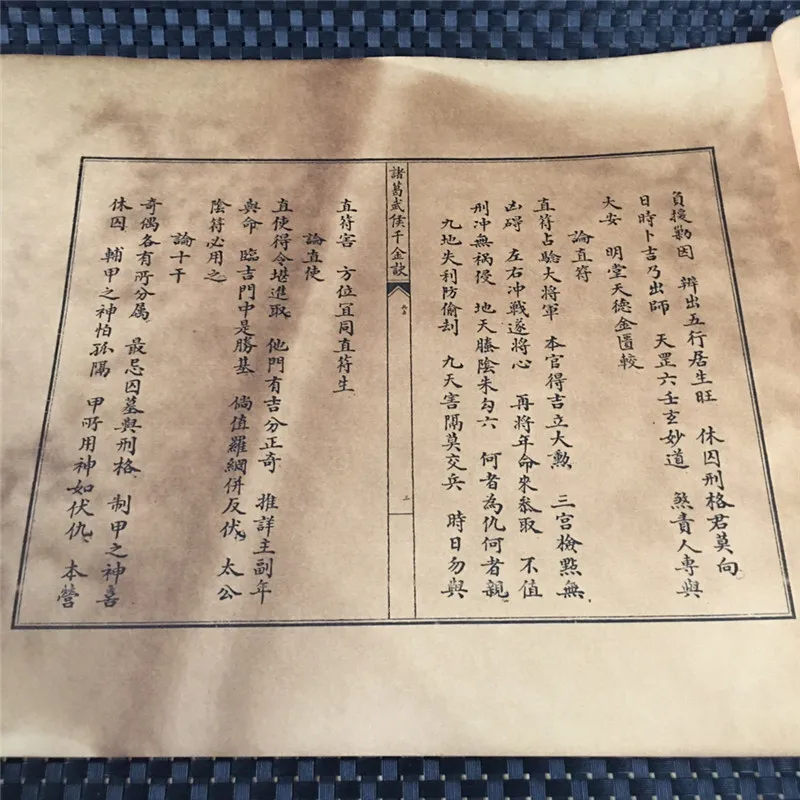 負援勤因 辨出五行居生旺 休囚刑格君莫向
日時卜吉乃出師 天罡六壬玄妙道 煞責人專與
大安 明堂天德金匱較
論直符
直符占驗大將軍 本官得吉立大勲 三宫檢點無
凶碍 左右冲戰遂將心 再將年命來叅取 不值
刑冲無禍侵 地天螣陰朱勾六 何者為仇何者親
九地失利防偷刦 九天害隔莫交兵 時日勿與
諸葛武侯千金訣
直符害 方位宜同直符生
論直使
直使得令堪進取 他門有吉分正奇 推詳主副年
與命 臨吉門中是勝基 倘值羅網併反伏 太公
陰符必用之
論十干
奇偶各有所分属 最忌囚墓與刑格 制甲之神喜
休囚 輔甲之神怕孤隔 甲所用神如伏仇 本營